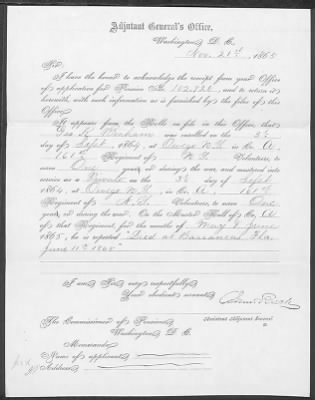 Adjutant General's Office,
Washington, D. C.
Nov. 21st, 1865
Sir:
I have the honor to acknowledge the receipt from your Office
of application for Pension No. 102.920, and to return it
herewith, with such information as is furnished by the files of this
Office.
It appears from the Rolls on file in this Office, that
Geo. R. was enrolled on the
day of Sept, 1864, at Owego N.Y. in Co. A,
161st Regiment of N.Y. Volunteers, to
serve One years, or during the war, and mustered into
service as a Private on the day of Sept,
1864, at Owego N.Y., in Co. A, 161st
Regiment of N.Y. Volunteers, to serve One
years, or during the war. On the Muster Roll of Co. A
of that Regiment, for the months of May & June,
1865, he is reported "Died at Barrancas Fla.
June 11th 1865"
I am Sir, very respectfully,
Your obedient servant,
Assistant Adjutant General.
The Commissioner of Pensions,
Washington, D. C.
Memoranda:
Name of applicant
Address